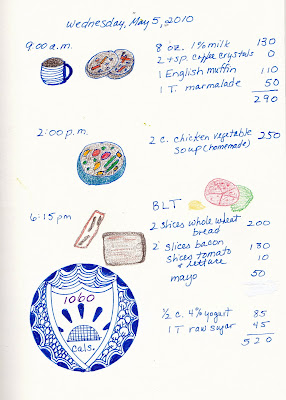 Wednesday, May 5, 2010
9:00 a.m.
8 oz. 1% milk 130
2 tsp. coffee crystals 0
1 English muffin 110
1 T. marmalade 50
290
2:00 p.m.
2 c. chicken vegetable 250
soup (homemade)
BLT
6:15 pm
2 slices whole wheat 200
bread
2 slices bacon 130
slices tomato 10
& lettuce
mayo 50
1/2 c. 4% yogurt 85
1 T raw sugar 45
520
1060
cals.